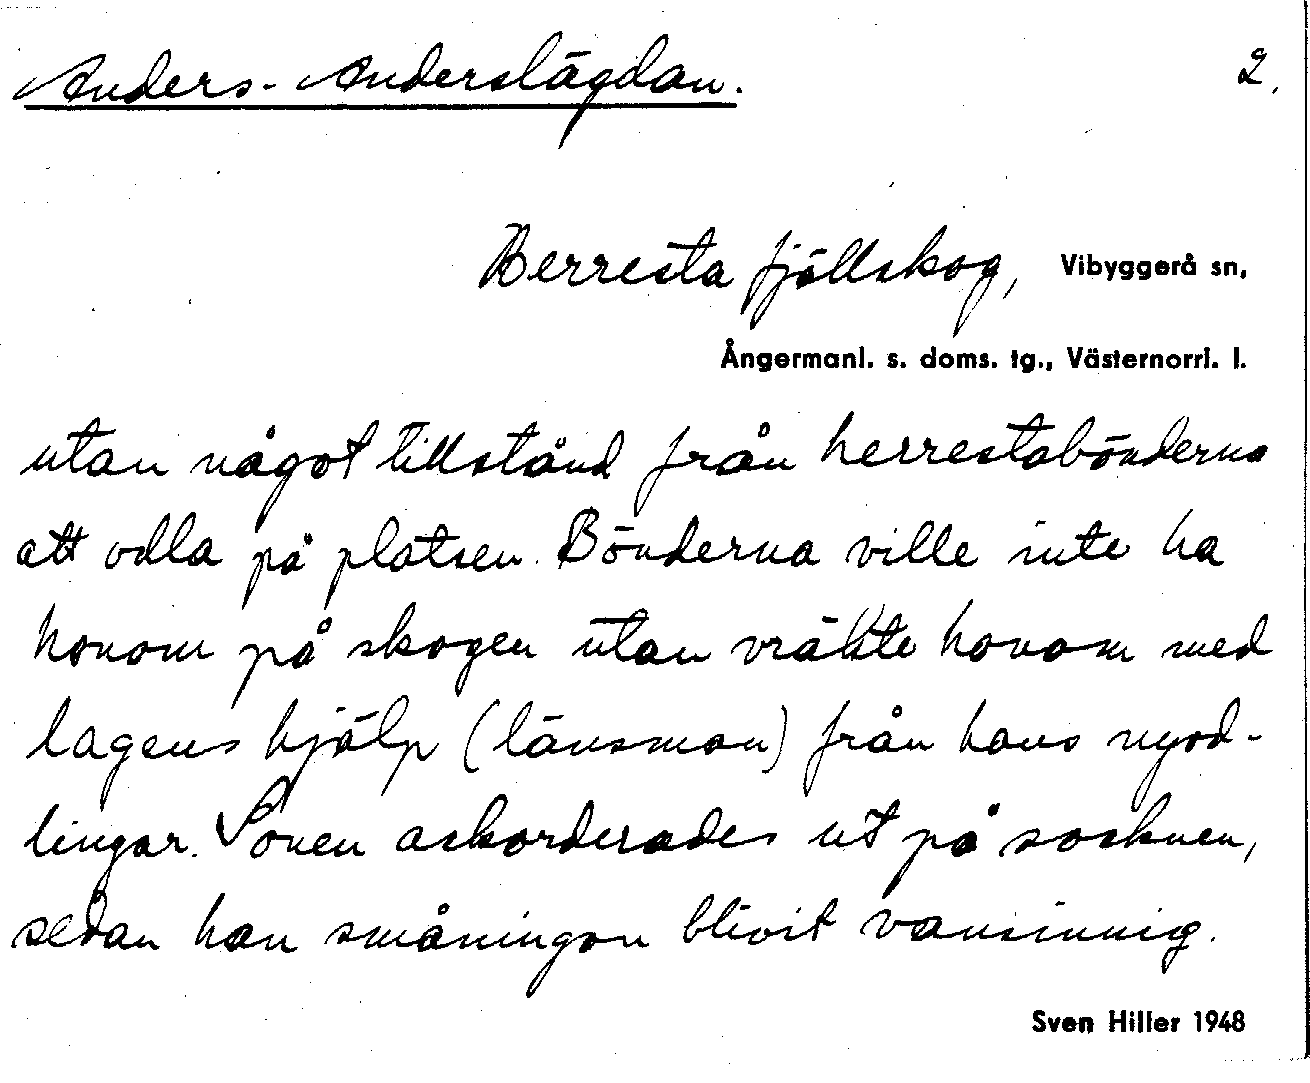 Anders-Anderslägdan. 2.
Herresta fjällskog, Vibyggerå sn,
Ångermanl. s. doms. tg., Västernorrl. l.
utan något tillstånd från herrestabönderna
att odla på platsen. Bönderna ville inte ha
honom på skogen utan vräkte honom med
lagens hjälp (länsman) från hans nyod-
lingar. Sonen ackorderades ut på socknen,
sedan han småningon blivit vansinnig.
Sven Hiller 1948